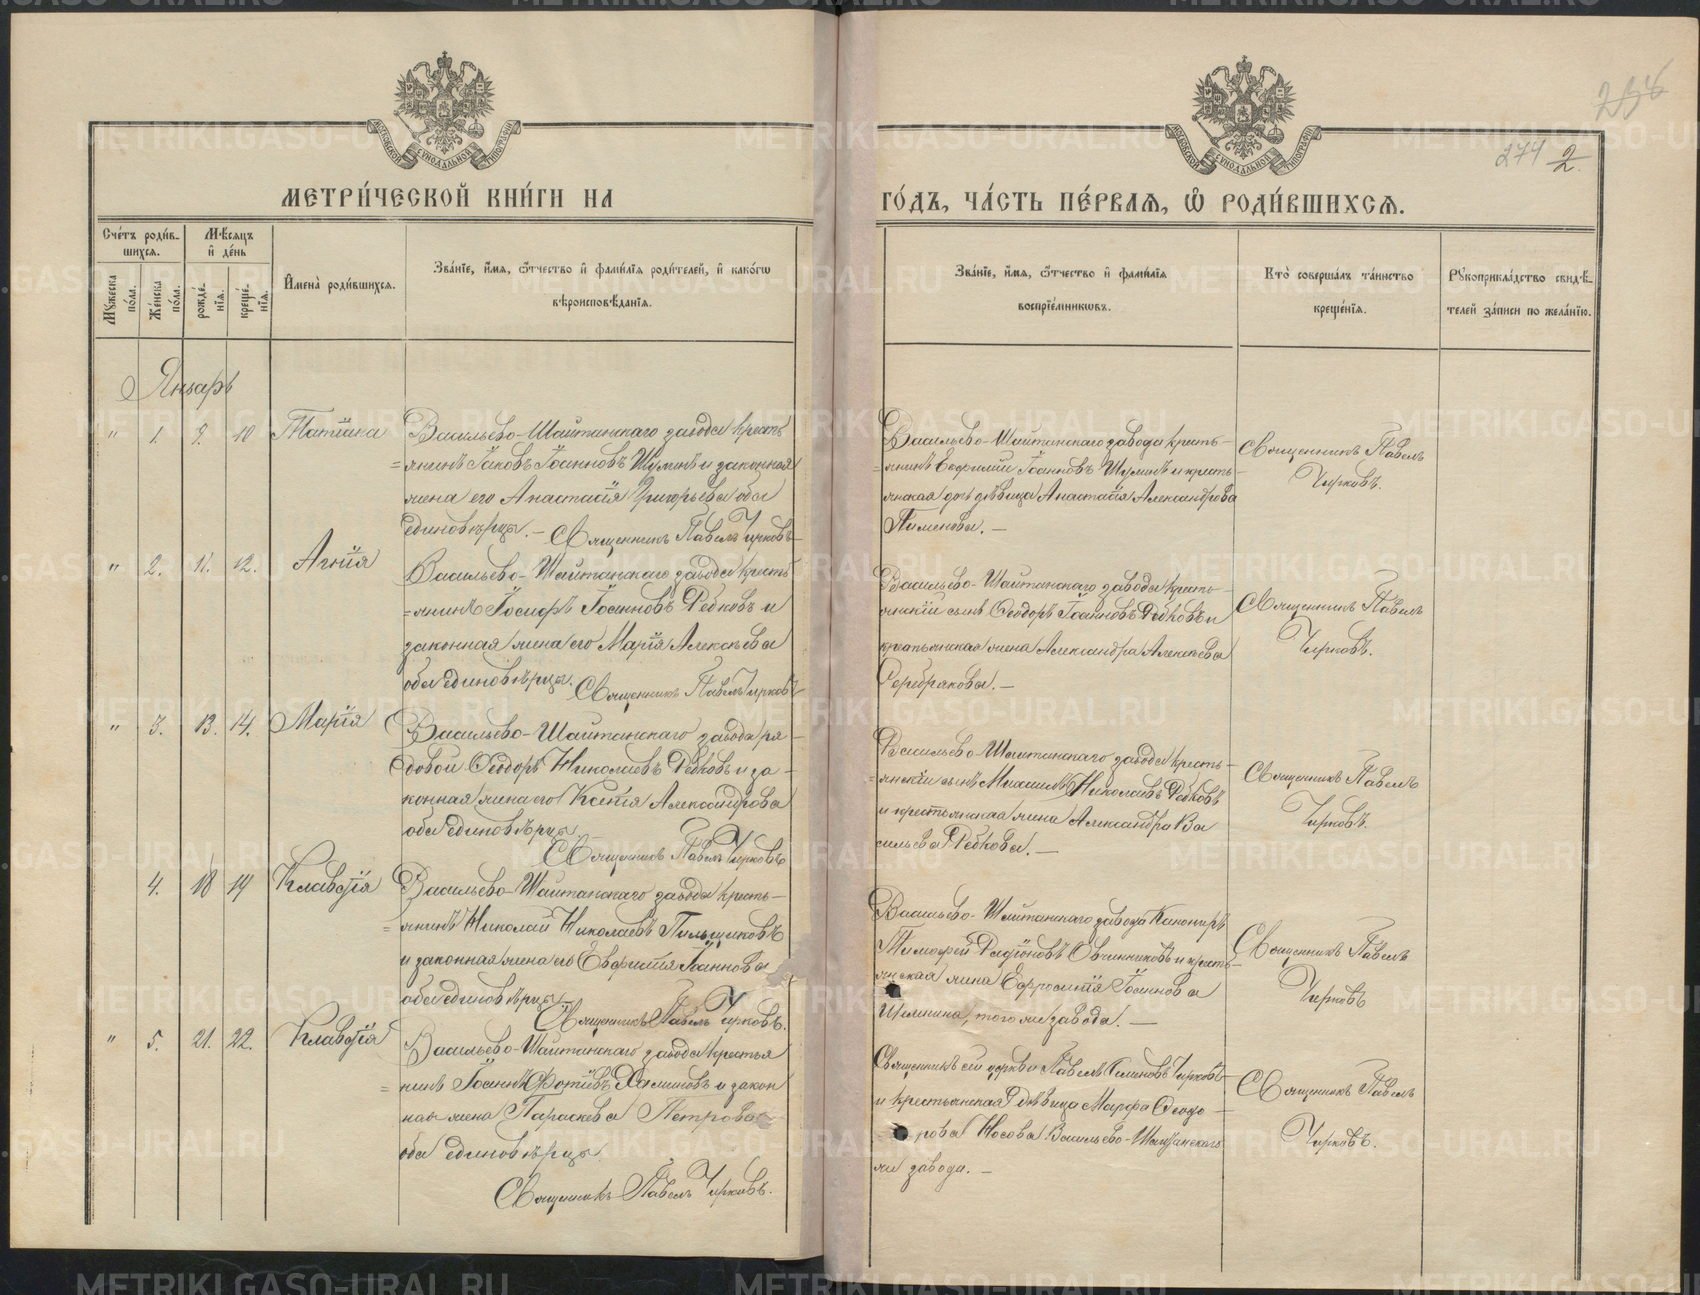 236
274 2
МОСКОВСКОЙ СУНОДАЛЬНОЙ ТИПОГРАФІИ
МОСКОВСКОЙ СУНОДАЛЬНОЙ ТИПОГРАФІИ
МЕТРИ́ЧЕСКОЙ КНИ́ГИ НА
ГО́ДЪ, ЧА́СТЬ ПЕ́РВАѦ, Ѡ РОДИ́ВШИХСѦ.
Сче́тъ роди́в-
шихся.
Мѣ́сяцъ
и҆ де́нь
Мꙋжеска
по́ла.
Же́нска
по́ла.
рожде́-
нїя.
креще́-
нїя.
И҆мена̀ роди́вшихся.
Зва́нїе, и҆́мя, ѻ҆́тчество и҆ фами́лїя роди́телей, и҆ како́гѡ
вѣроисповѣ́данїя.
Зва́нїе, и҆́мя, ѻ҆́тчество и҆ фами́лїя
воспрїе́мникѡвъ.
Кто̀ соверша́лъ та́инство
креще́нїя.
Рꙋкоприкла́дство свидѣ́-
телей за́писи по жела́нїю.
Январь
" 1. 9. 10 Татіана
Васильево-Шайтанскаго завода кресть
=янинъ Іаковъ Іоанновъ Шуминъ и законная
жена его Анастасія Григорьева оба
единовѣрцы. — Священникъ Павелъ Чирковъ
Васильево-Шайтанскаго завода кресть-
=янинъ Евфимій Іоанновъ Шуминъ и кресть-
янская дочь дѣвица Анастасія Александрова
Пименова. —
Священникъ Павелъ
Чирковъ.
" 2. 11. 12. Агнія
Васильево-Шайтанскаго завода кресть
=янинъ Іосифъ Іоанновъ Рябковъ и
законная жена его Марія Алексѣева
оба единовѣрцы. Священникъ Павелъ Чирковъ
Васильево-Шайтанскаго завода кресть-
янскій сынъ Ѳеодоръ Іоанновъ Рябковъ и
крестьянская жена Александра Алексѣева
Серебрякова. —
Священникъ Павелъ
Чирковъ.
" 3. 13. 14. Марія
Васильево-Шайтанскаго завода ря-
довой Ѳеодоръ Николаевъ Рябковъ и за-
конная жена его Ксенія Александрова
оба единовѣрцы.
Священникъ Павелъ Чирковъ
Васильево-Шайтанскаго завода кресть-
=янскій сынъ Михаилъ Николаевъ Рябковъ
и крестьянская жена Александра Ва
сильева Рябкова. —
Священникъ Павелъ
Чирковъ.
4. 18 19 Клавдія
Васильево-Шайтанскаго завода кресть-
=янинъ Николай Николаевъ Пильщиковъ
и законная жена его Евфимія Іоаннова
оба единовѣрцы
Священникъ Павелъ Чирковъ.
Васильево-Шайтанскаго завода Канониръ
Тимофей Родіоновъ Овчинниковъ и кресть-
янская жена Ефросинія Іоаннова
того же завода. —
Священникъ Павелъ
Чирковъ
" 5. 21. 22. Клавдія
Васильево-Шайтанскаго завода крестья
=нинъ Іоаннъ Фотіевъ Халиновъ и закон
ная жена Параскева Петрова
оба единовѣрцы.
Священникъ Павелъ Чирковъ.
Священникъ сей церкви Павелъ Чирковъ
и крестьянская дѣвица Марфа Ѳеодо-
рова Носова Васильево-Шайтанскаго
же завода. —
Священникъ Павелъ
Чирковъ.
METRIKI.GASO-URAL.RU